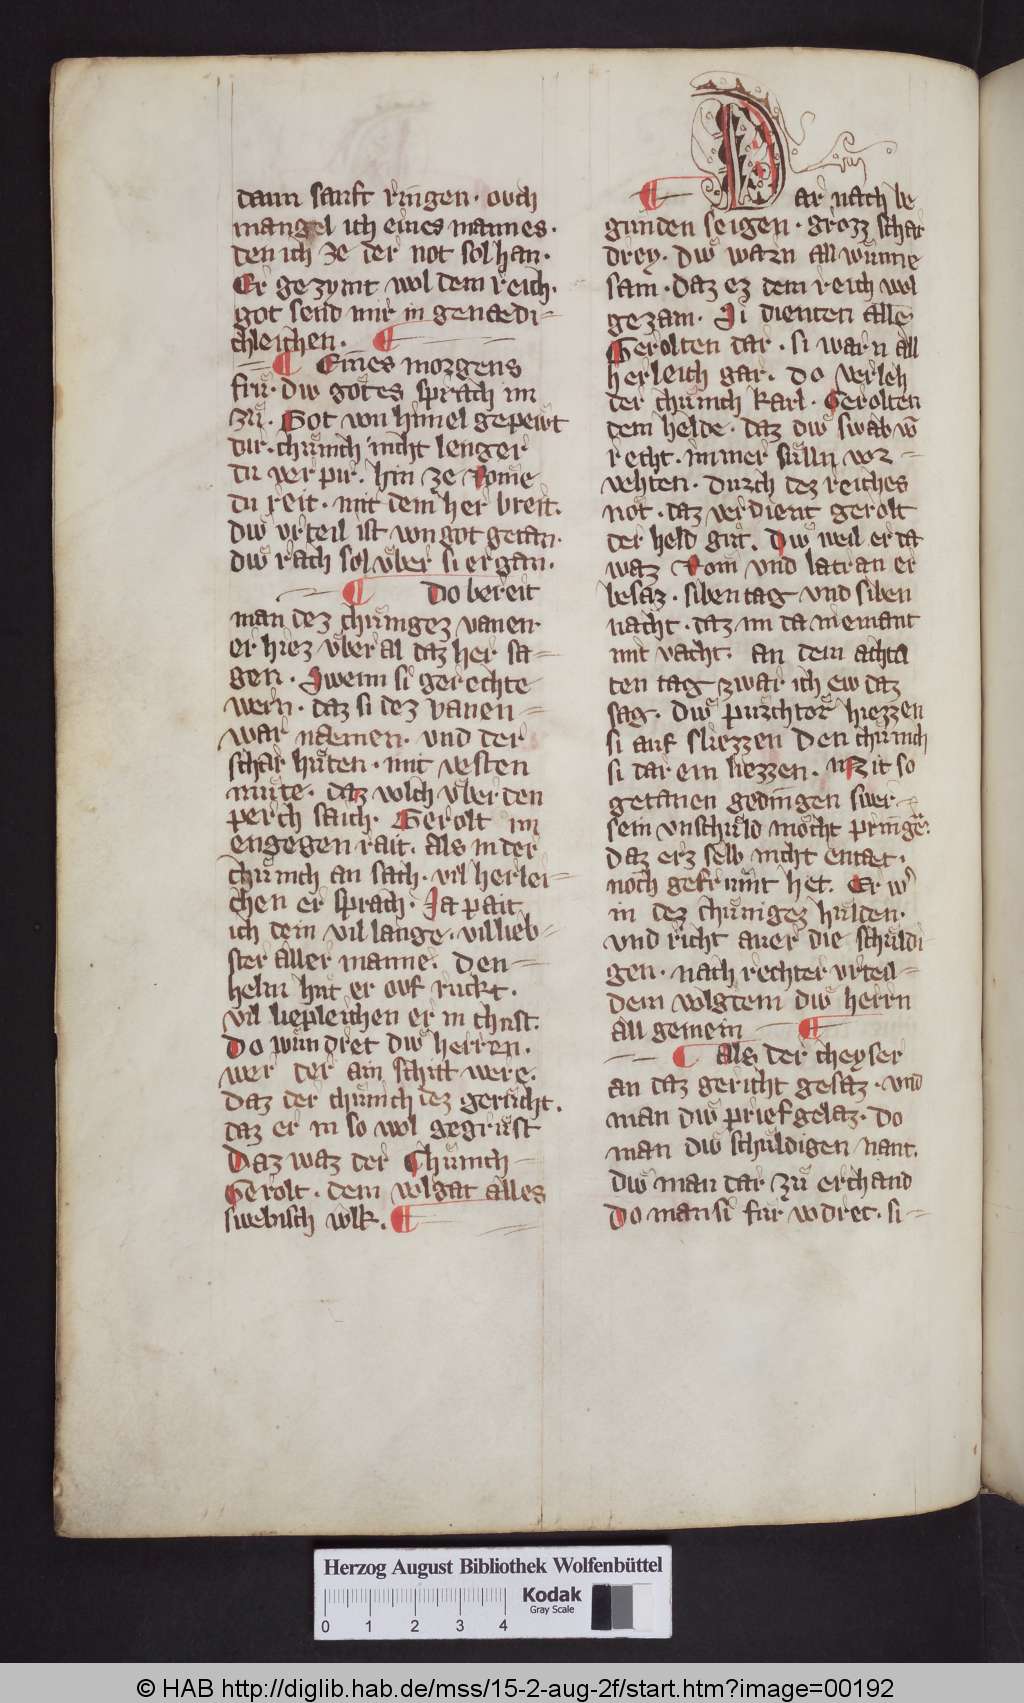 dann sanft ringen · ouch
mangel ich eines mannes ·
den ich ze der not sol han ·
Er gezymt wol dem reich ·
got send mir in genædi-
chleichen ·
Eines morgens
frů · diw gotes sprach im
zů · Got von himel gepewt
dir · chůnich nicht lenger
du verpir · hin ze Rome
du reit · mit dem her breit ·
diw vrteil ist von got getan ·
diw rach sol vber si ergan ·
Do bereit
man dez chůnigez vanen ·
er hiez vber al daz her sa-
gen · Swenn si gerechte
wern · daz si dez vanen
war næmen · vnd der
schar hůten · mit vesten
můte · daz volch vber den
perch saich · Gerolt im
engegen rait · als in der
chůnich an sach · vil herlei-
chen er sprach · Ja pait
ich dein vil lange · vil lieb-
ster aller manne · Den
helm hůt er ouf ruckt ·
vil liepleichen er in chust ·
Do wundret diw herren ·
wer der ain schilt were ·
Daz der chunich dez gerucht ·
daz er in so wol gegrůst
Daz waz der Chůnich
Gerolt · dem volgat alles
swebisch volk ·
Dar nach be
gunden seigen · grozz schar
drey · diw warn all wunne
sam · daz ez dem reich wol
gezam · Si dienten alle
Gerolten dar · si warn all
herleich gar · do verleh
der chůnich Karl · Gerolten
dem helde · daz diw swab vō
recht · immer sulln vor
vehten · durch dez reiches
not · daz verdient gerolt
der held gůt · Diw weil er da
waz Rom vnd latran er
besaz · siben tag vnd siben
nacht · daz im da niemant
mit vacht · an dem achta
ten tag zwar ich ew daz
sag · diw purchtor hiezzen
si auf sliezzen Den chůnich
si dar ein liezzen · Mit so
getanen gedingen swer
sein vnschuld mocht pringē ·
daz erz selb nicht entæt ·
noch gefrumt het · Er wͤ
in dez chůnigez hulden ·
vnd richt auer die schuldi
gen · nach rechter vrteil
dem volgten diw herrn
all gemein
Als der cheyser
an daz gericht gesaz · vnd
man diw prief gelaz · do
man diw schuldigen nant ·
diw man dar zů erchand
Do man si fůr vodret · si
Herzog August Bibliothek Wolfenbüttel
Kodak
Gray Scale
0 1 2 3 4
© HAB http://diglib.hab.de/mss/15-2-aug-2f/start.htm?image=00192